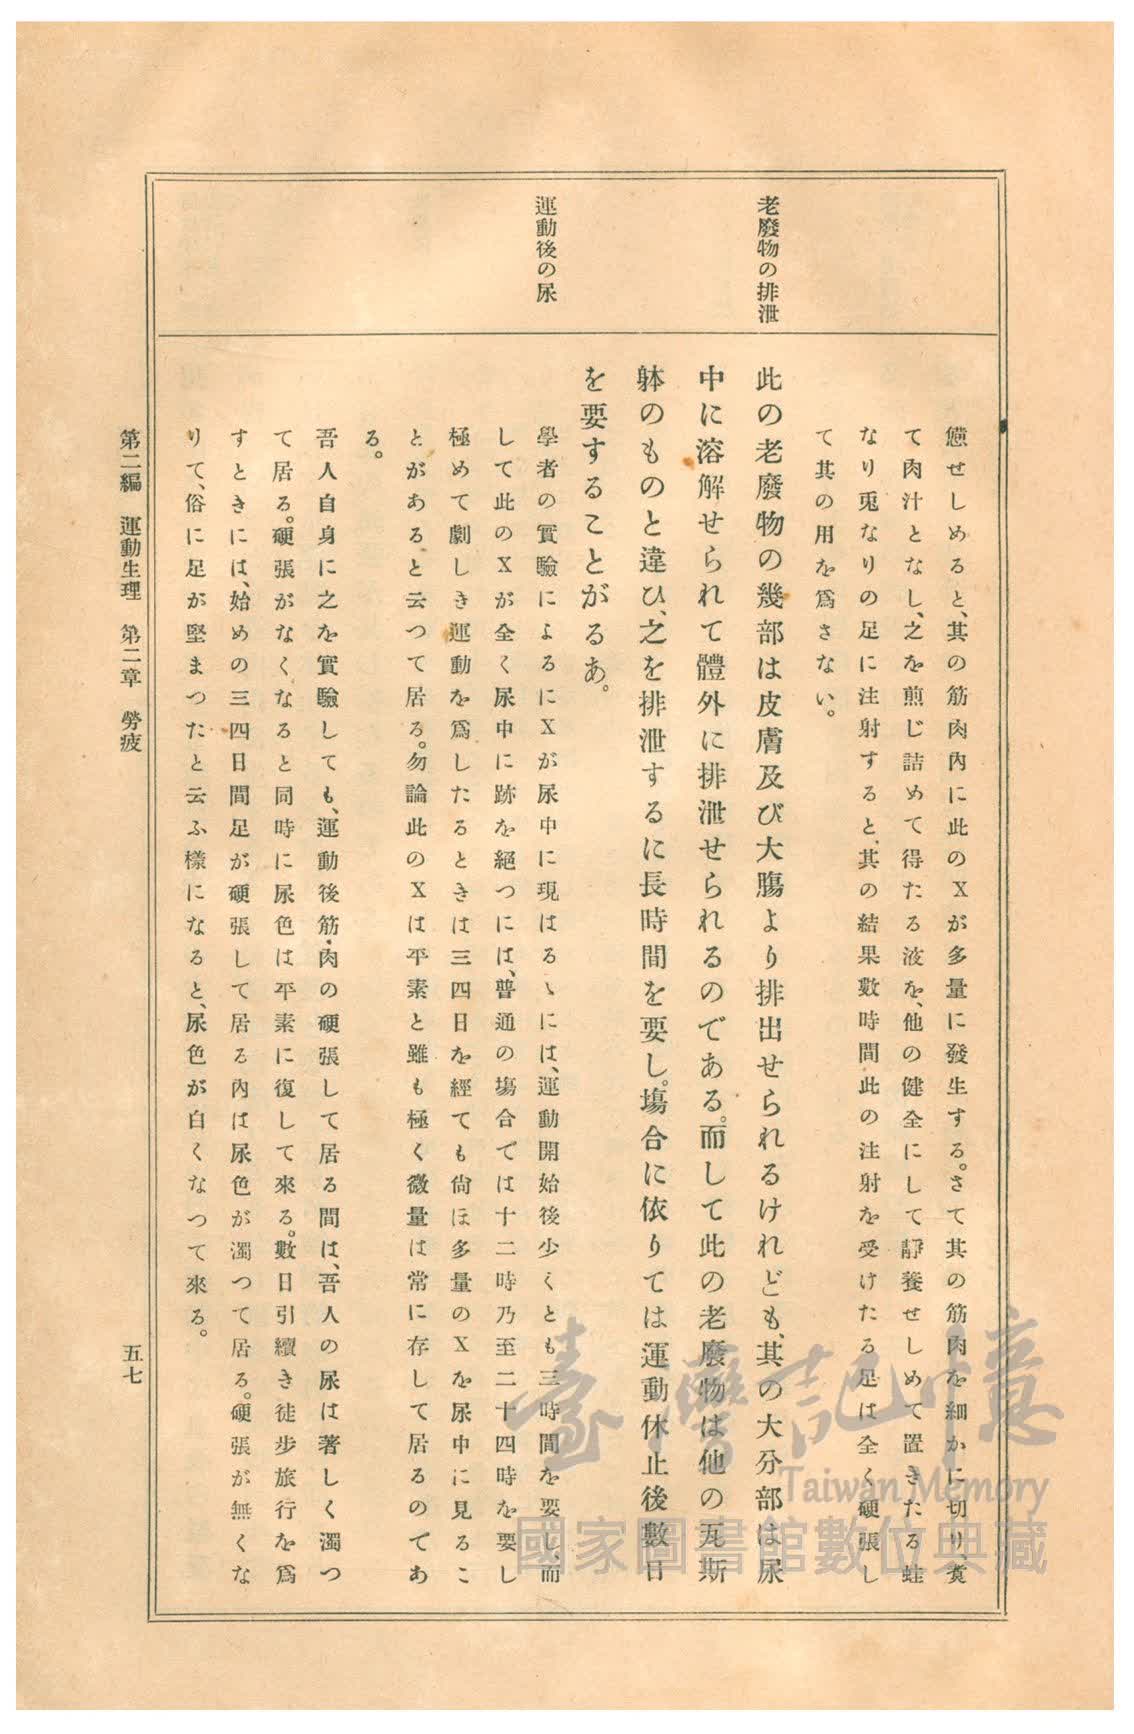 老廢物の排泄
運動後の尿
憊せしめると、其の筋肉內に此のXが多量に發生する。さて其の筋肉を細かに切り、煑
て肉汁となし、之を煎じ詰めて得たる液を、他の健全にして靜養せしめて置きたる蛙
なり兎なりの足に注射すると、其の結果數時間此の注射を受けたる足は全く硬張し
て其の用を爲さない。
此の老廢物の幾部は皮膚及び大膓より排出せられるけれども、其の大分部は尿
中に溶解せられて體外に排泄せられるのである。而して此の老廢物は他の瓦斯
躰のものと違ひ、之を排泄するに長時間を要し。塲合に依りては運動休止後數日
を要することがるあ。
學者の實驗によるにXが尿中に現はるゝには、運動開始後少くとも三時間を要し、而
して此のXが全く尿中に跡を絕つには、普通の塲合では十二時乃至二十四時を要し
極めて劇しき運動を爲したるときは三四日を經ても尙ほ多量のXを尿中に見るこ
とがあると云つて居る。勿論此のXは平素と雖も極く微量は常に存して居るのであ
る。
吾人自身に之を實驗しても、運動後筋肉の硬張して居る間は、吾人の尿は著しく濁つ
て居る。硬張がなくなると同時に尿色は平素に復して來る。數日引續き徒步旅行を爲
すときには、始めの三四日間足が硬張して居る內は尿色が濁つて居る。硬張が無くな
りて、俗に足が堅まつたと云ふ樣になると、尿色が白くなつて來る。
第二編　運動生理　第二章　勞疲
五七
臺灣記憶
Taiwan Memory
國家圖書館數位典藏